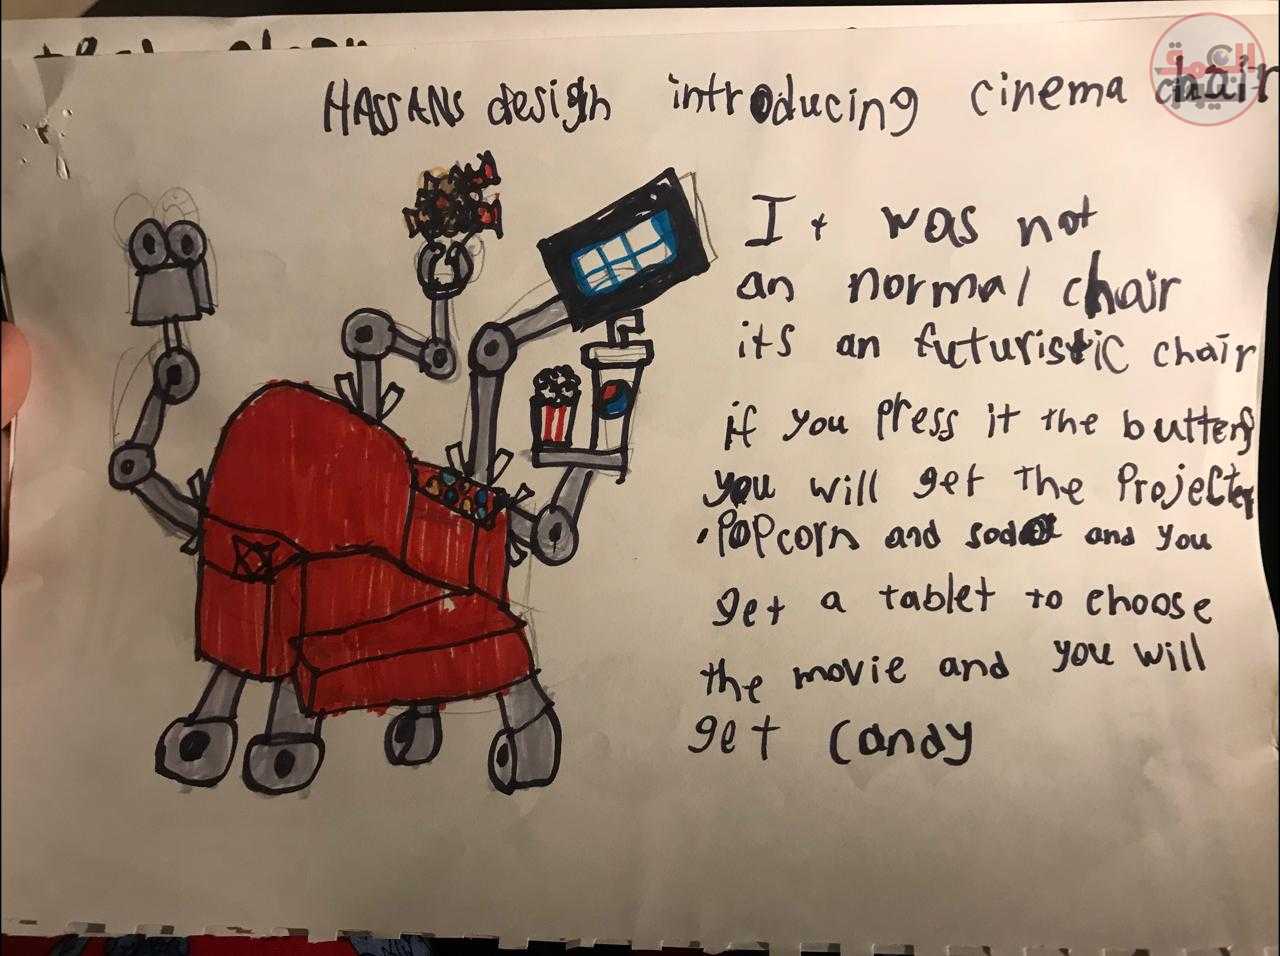 HASSANS design introducing cinema chair
It was not
an normal chair
its an futuristic chair
if you press it the buttens
you will get the Projecter
.POPcorn and soda and you
get a tablet to choose
the movie and you will
get candy